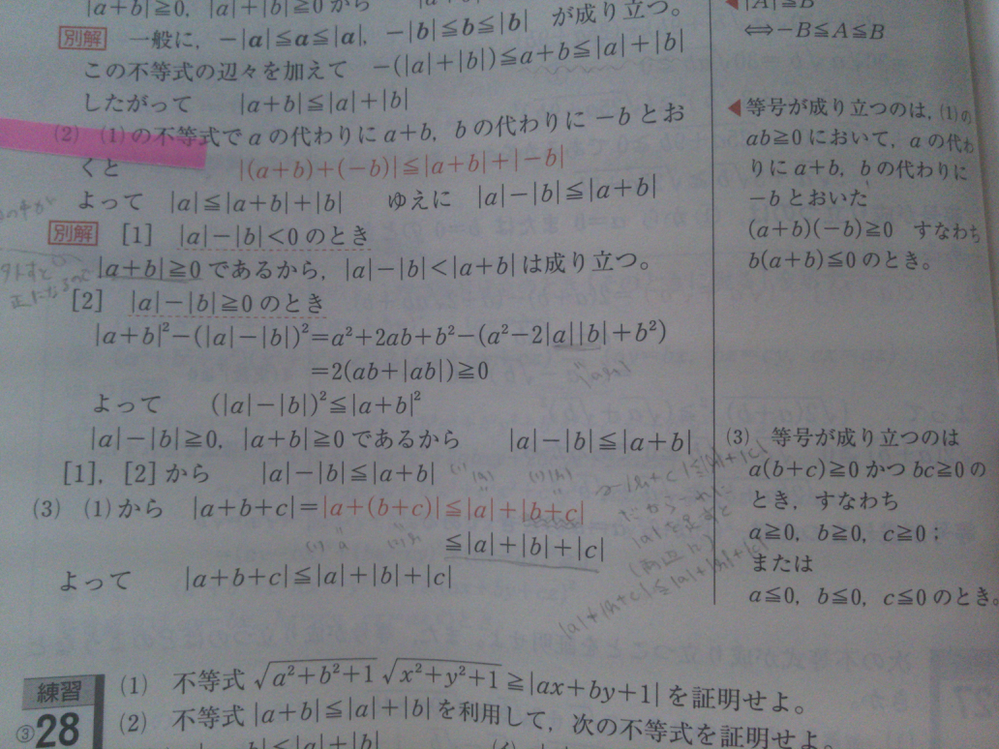 |a+b|≧0, |a|+|b|≧0 から が成り立つ。
別解 一般に, −|a|≦a≦|a|, −|b|≦b≦|b|
この不等式の辺々を加えて −(|a|+|b|)≦a+b≦|a|+|b|
したがって |a+b|≦|a|+|b|
(2) (1)の不等式で a の代わりに a+b, b の代わりに −b とお
くと |(a+b)+(−b)|≦|a+b|+|−b|
よって |a|≦|a+b|+|b| ゆえに |a|−|b|≦|a+b|
別解 [1] |a|−|b|<0 のとき
|a+b|≧0 であるから, |a|−|b|<|a+b| は成り立つ。
[2] |a|−|b|≧0 のとき
|a+b|²−(|a|−|b|)²=a²+2ab+b²−(a²−2|a||b|+b²)
=2(ab+|ab|)≧0
よって (|a|−|b|)²≦|a+b|²
|a|−|b|≧0, |a+b|≧0 であるから |a|−|b|≦|a+b|
[1], [2] から |a|−|b|≦|a+b|
(3) (1) から |a+b+c|=|a+(b+c)|≦|a|+|b+c|
≦|a|+|b|+|c|
よって |a+b+c|≦|a|+|b|+|c|
◀|A|≦B
⇔−B≦A≦B
◀等号が成り立つのは, (1)の
ab≧0 において, a の代わ
りに a+b, b の代わりに
−b とおいた
(a+b)(−b)≧0 すなわち
b(a+b)≦0 のとき。
(3) 等号が成り立つのは
a(b+c)≧0 かつ bc≧0 の
とき, すなわち
a≧0, b≧0, c≧0 ;
または
a≦0, b≦0, c≦0 のとき。
|b+c|≦|b|+|c|
だから
|a|を足すと
(両辺に)
|a|+|b+c|≦|a|+|b|+|c|
練習
③28
(1) 不等式 √(a²+b²+1) √(x²+y²+1) ≧|ax+by+1| を証明せよ。
(2) 不等式 |a+b|≦|a|+|b| を利用して, 次の不等式を証明せよ。